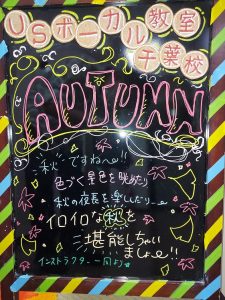 USボーカル教室
千葉校
AUTUMN
秋ですね〜!!
色づく景色を眺めたり
秋の夜長を楽しんだり〜
イロイロな秋を
堪能しちゃい
ましょ〜!!
インストラクター一同より